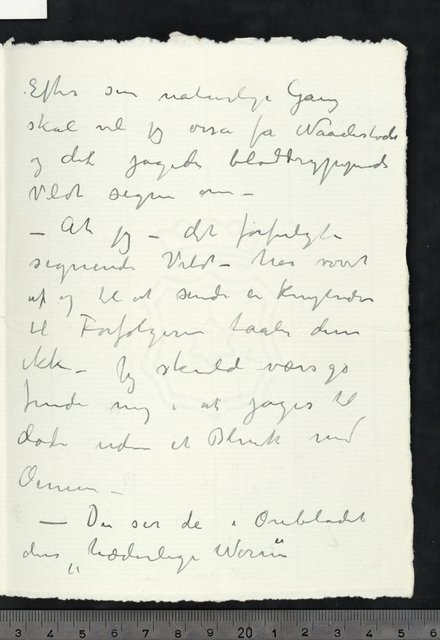 Efter sin naturlige Gang
skal vel jeg ogsa fa Naadestødet
og det jagede bloddryppende
Vildt segne om –
– At jeg – det forfulgte
segnende Vildt – har vovet
af og til at sende en
til Forfølgerne taales dem
ikke – Jeg skulde værsgo
finde mig i at jages til
døde uden et Blink med
Øinene –
– Du ser de i Ørebladet
den „hæderlige Worm"